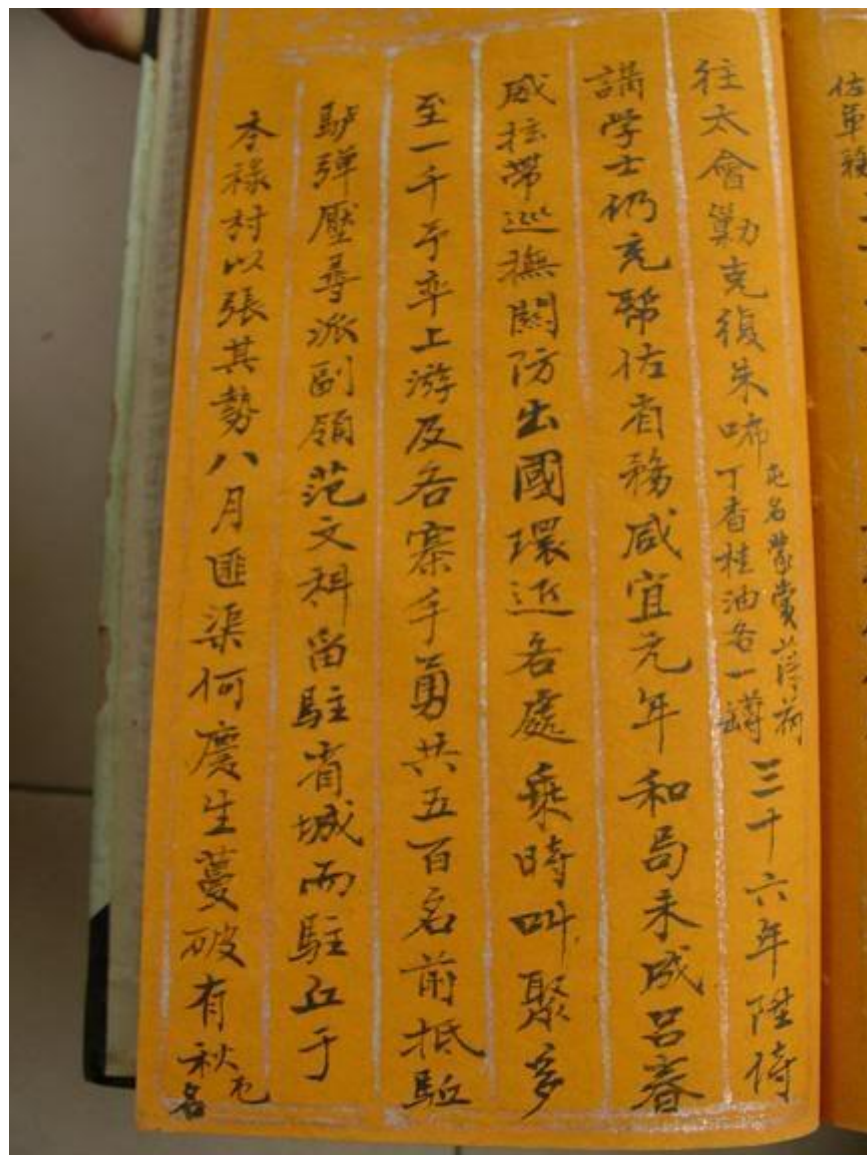 佐軍務
往太會勦克復朱㖊屯名蒙賞薄荷丁香桂油各一罇三十六年陞侍
講学士仍充幫佐省務咸宜元年和局未成呂春
威拉帶巡撫関防出國環近各處乘時叫聚多
至一千予率上游及各寨手勇共五百名前抵
馿弹壓尋派副領范文科留駐省城而駐丘于
禄村以張其勢八月匪渠何慶生蔓破有秋屯名